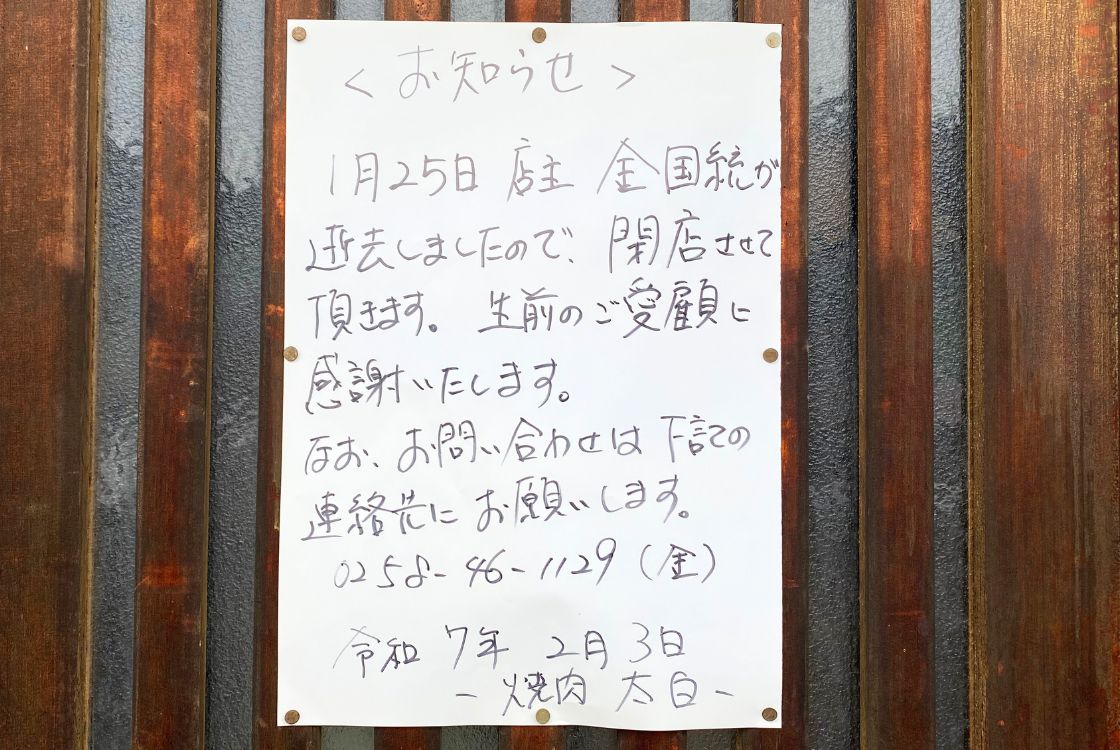 ＜お知らせ＞
1月25日 店主 金国統が
逝去しましたので、閉店させて
頂きます。 生前のご愛顧に
感謝いたします。
なお、お問い合わせは下記の
連絡先にお願いします。
0258-46-1129（金）
令和7年 2月3日
－焼肉 太白－